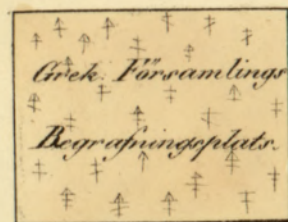 Grek. Församlings
Begrafningsplats.